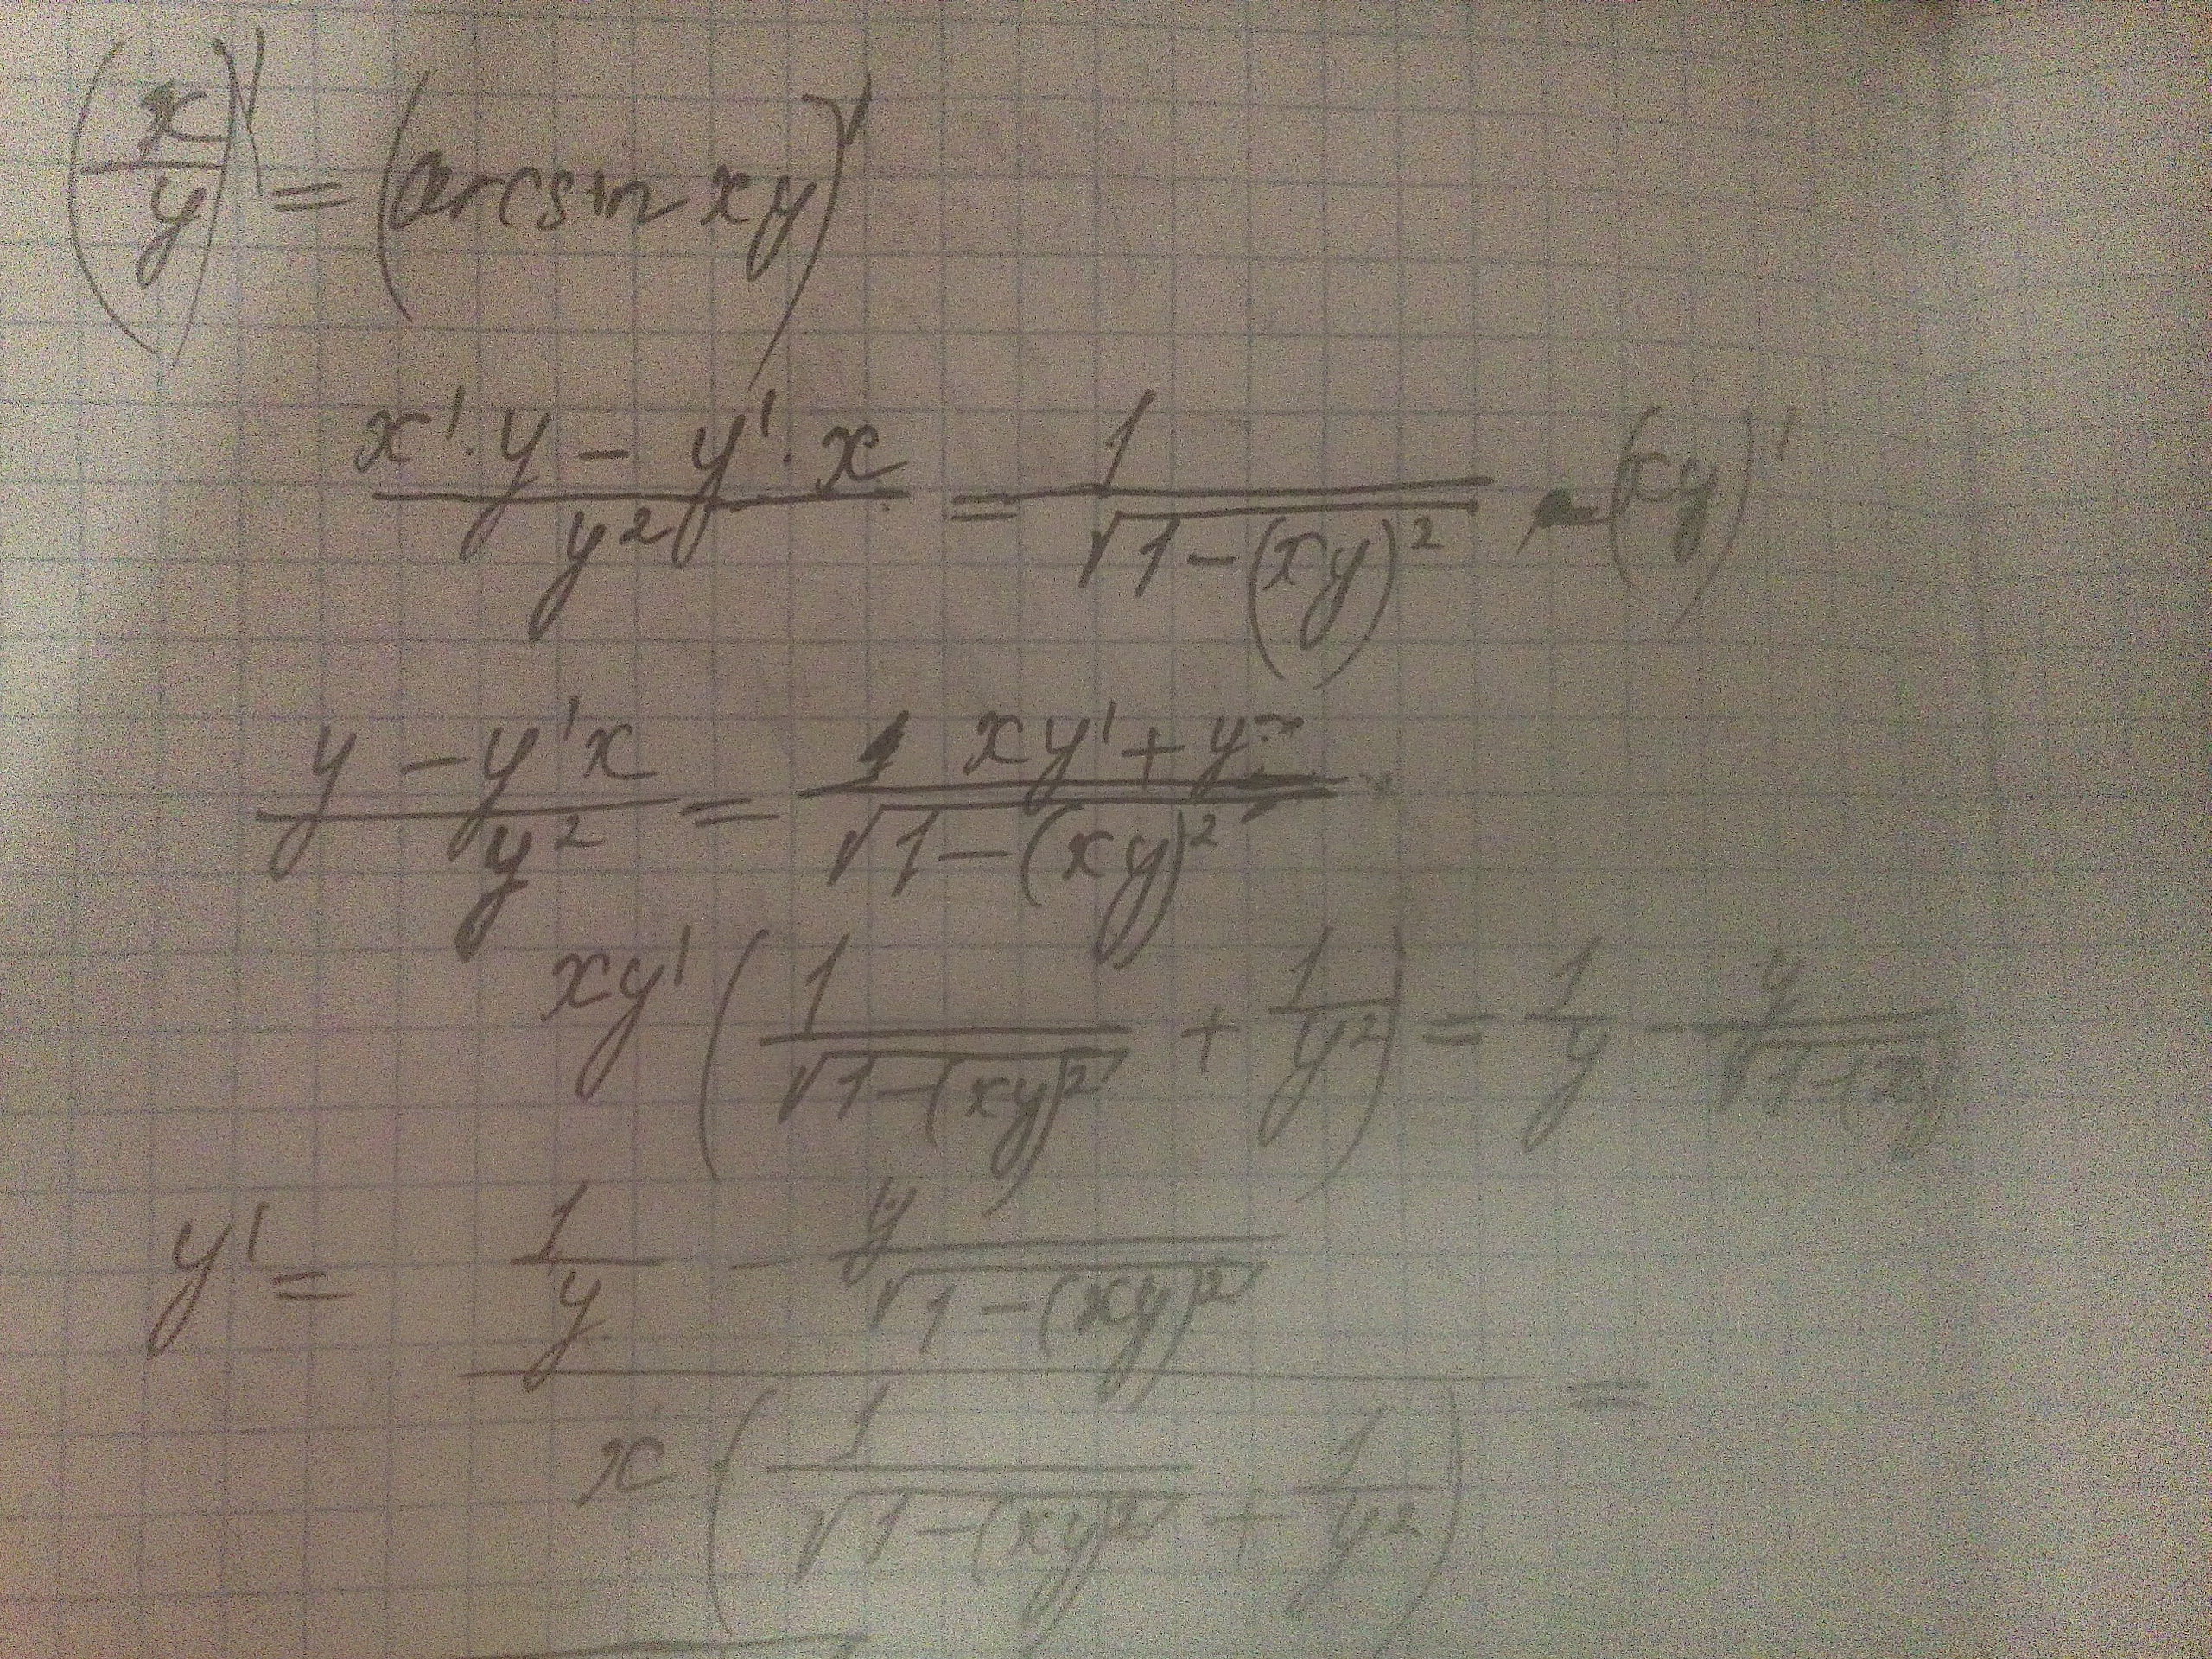 (x/y)' = (arcsin xy)'
(x'·y − y'·x)/y² = 1/√(1−(xy)²) · (xy)'
(y − y'x)/y² = (xy' + y)/√(1−(xy)²)
xy' (1/√(1−(xy)²) + 1/y²) = 1/y − y/√(1−(xy)
y' = (1/y − y/√(1−(xy)²))/(x (1/√(1−(xy)²) + 1/y²)) =